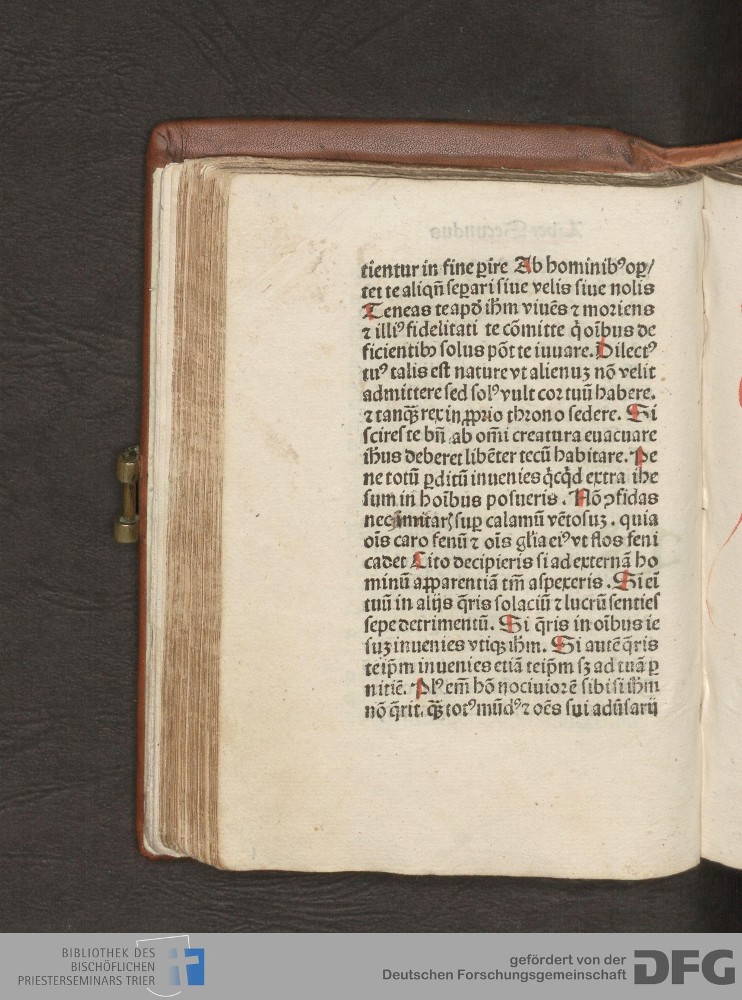 tientur in fine ꝑire Ab hominibꝰ opꝫ/
tet te aliqn̄ seꝑari siue velis siue nolis
Teneas te apd̕ ih̄m viuēs ⁊ moriens
⁊ illiꝰ fidelitati te cōmitte q̇ oībus de
ficientibꝰ solus pōt te iuuare. Dilectꝰ
tuꝰ talis est nature vt alienuꝫ nō velit
admittere sed solꝰ vult cor tuū habere.
⁊ tanq̄ꝫ rex in ꝓprio throno sedere. Si
scires te bn̄ ab om̄i creatura euacuare
ih̄us deberet libēter tecū habitare. Pe
ne totū ꝑditū inuenies q̇cq̇d extra ihe
sum in hoībus posueris. Nō ꝯfidas
nec īnitarꝭ suꝑ calamū vētosuꝫ. quia
oīs caro fenū ⁊ oīs gl̄ia eiꝰ vt flos feni
cadet Cito decipieris si ad externā ho
minū aꝑparentiā tm̄ aspexeris. Si eī
tuū in alijs q̄ris solaciū ⁊ lucrū senties
sepe detrimentū. Si q̄ris in oībus ie
suꝫ inuenies vtiqꝫ ih̄m. Si autē q̄ris
teip̄m inuenies etiā teip̄m sꝫ ad tuā ꝑ
nitiē. Plꝰ em̄ hō nociuior ē sibi si ih̄m
nō q̄rit. q̄ꝫ totꝰ mūdꝰ ⁊ oēs sui adūsarij
BIBLIOTHEK DES
BISCHÖFLICHEN
PRIESTERSEMINARS TRIER
gefördert von der
Deutschen Forschungsgemeinschaft DFG